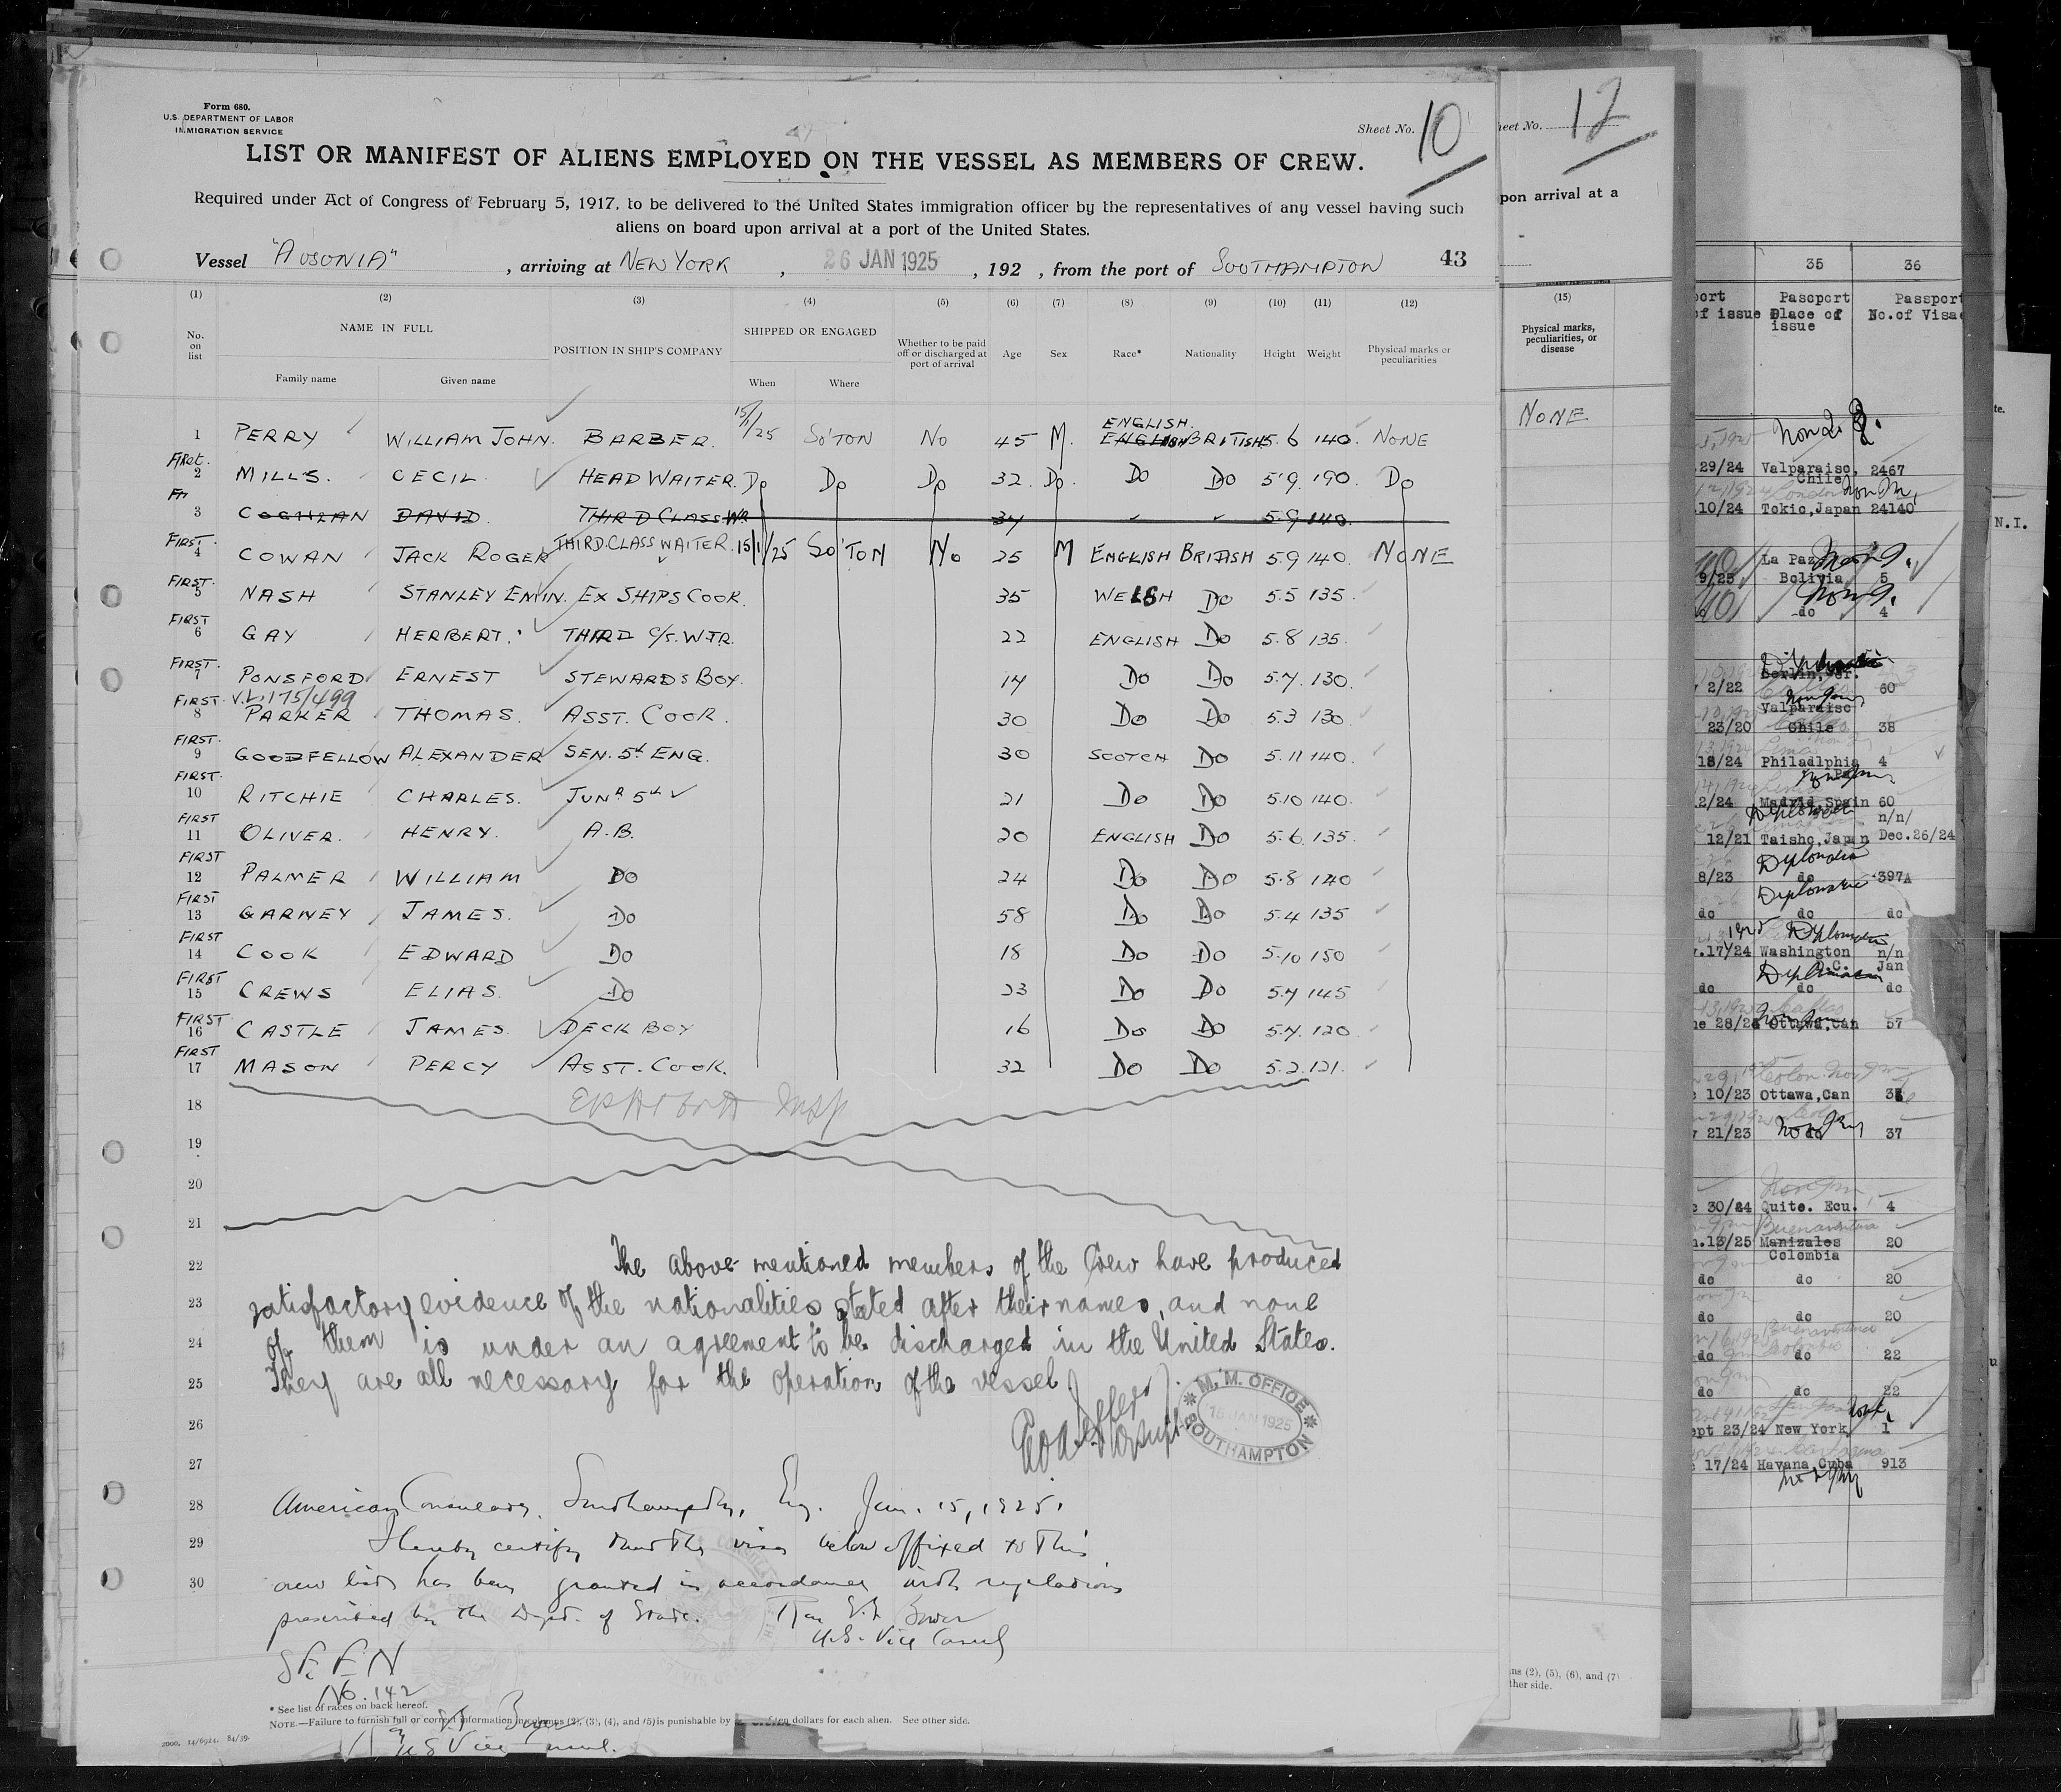 Form 680.
U.S. DEPARTMENT OF LABOR
IMMIGRATION SERVICE
Sheet No. 10
LIST OR MANIFEST OF ALIENS EMPLOYED ON THE VESSEL AS MEMBERS OF CREW.
Required under Act of Congress of February 5, 1917, to be delivered to the United States immigration officer by the representatives of any vessel having such
aliens on board upon arrival at a port of the United States.
Vessel "AUSONIA", arriving at NEW YORK, 26 JAN 1925, 192 , from the port of SOUTHAMPTON 43
(1) (2) (3) (4) (5) (6) (7) (8) (9) (10) (11) (12)
No. on list NAME IN FULL POSITION IN SHIP'S COMPANY SHIPPED OR ENGAGED Whether to be paid off or discharged at port of arrival Age Sex Race* Nationality Height Weight Physical marks or peculiarities
Family name Given name When Where
1 PERRY WILLIAM JOHN. BARBER. 15/1/25 SO'TON NO 45 M. ENGLISH. ENGLISH BRITISH 5.6 140. NONE
FIRST. 2 MILLS. CECIL. HEAD WAITER. DO DO DO 32. DO. DO DO 5'9. 190. DO
3 COGHLAN DAVID. THIRD CLASS WR 34 5.9 140.
FIRST. 4 COWAN JACK ROGER THIRD.CLASS WAITER. 15/1/25 SO'TON NO 25 M ENGLISH BRITISH 5.9 140. NONE
FIRST. 5 NASH STANLEY EMIN. EX SHIPS COOK. 35 WELSH DO 5.5 135.
FIRST 6 GAY HERBERT. THIRD C/S. WTR. 22 ENGLISH DO 5.8 135.
FIRST. 7 PONSFORD ERNEST STEWARDS BOY. 14 DO DO 5.7. 130.
V.L. 175/499
FIRST. 8 PARKER THOMAS. ASST. COOK. 30 DO DO 5.3 130
FIRST. 9 GOODFELLOW ALEXANDER SEN. 5th ENG. 30 SCOTCH DO 5.11 140.
FIRST. 10 RITCHIE CHARLES. JUNR 5th 21 DO DO 5.10 140.
FIRST 11 OLIVER. HENRY. A.B. 20 ENGLISH DO 5.6. 135.
FIRST 12 PALMER WILLIAM DO 24 DO DO 5.8 140
FIRST 13 GARNEY JAMES. DO 58 DO DO 5.4 135
FIRST 14 COOK EDWARD DO 18 DO DO 5.10 150
FIRST 15 CREWS ELIAS. DO 23 DO DO 5.7 145
FIRST. 16 CASTLE JAMES. DECK BOY 16 DO DO 5.7. 120.
FIRST 17 MASON PERCY ASST. COOK. 32 DO DO 5.2. 121.
18
19
20
21
22 The above mentioned members of the Crew have produced
23 satisfactory evidence of the nationalities stated after their names, and none
24 of them is under an agreement to be discharged in the United States.
25 They are all necessary for the operation of the vessel.
26
M. M. OFFICE
15 JAN 1925
SOUTHAMPTON
27
28 American Consulate, Southampton, Eng. Jan. 15, 1925.
29 I hereby certify that the visa below affixed to this
30 crew list has been granted in accordance with regulations
prescribed by the Dept. of State.
U.S. Vice Consul
SEEN
No. 142
* See list of races on back hereof.
NOTE.—Failure to furnish full or correct information in columns (2), (3), (4), and (5) is punishable by ten dollars for each alien. See other side.
U S Vice Consul.
2000, 14/6924. 84/39.
heet No. 12
pon arrival at a
(15)
Physical marks, peculiarities, or disease
NONE
ns (2), (5), (6), and (7)
ther side.
35 36
port of issue Pascport Place of issue Passport No.of Visa
.29/24 Valparaiso, Chile 2467
.10/24 Tokio,Japan 24140
La Paz
9/25 Bolivia 5
do 4
Berlin, Ger.
2/22 60
Valparaiso
23/20 Chile 38
18/24 Philadlphia 4
2/24 Madrid,Spain 60
n/n/
12/21 Taisho,Japan Dec.26/24
8/23 do 397A
Diplomatic
do do do
.17/24 Washington D.C. n/n Jan
do do do
ne 28/24 Ottawa,Can 57
10/23 Ottawa,Can 38
21/23 do 37
30/24 Quito. Ecu. 4
Buenaventura
.13/25 Manizales Colombia 20
do do 20
do do 20
do do 22
do do 22
ept 23/24 New York 1
17/24 Havana,Cuba 913
N.I.